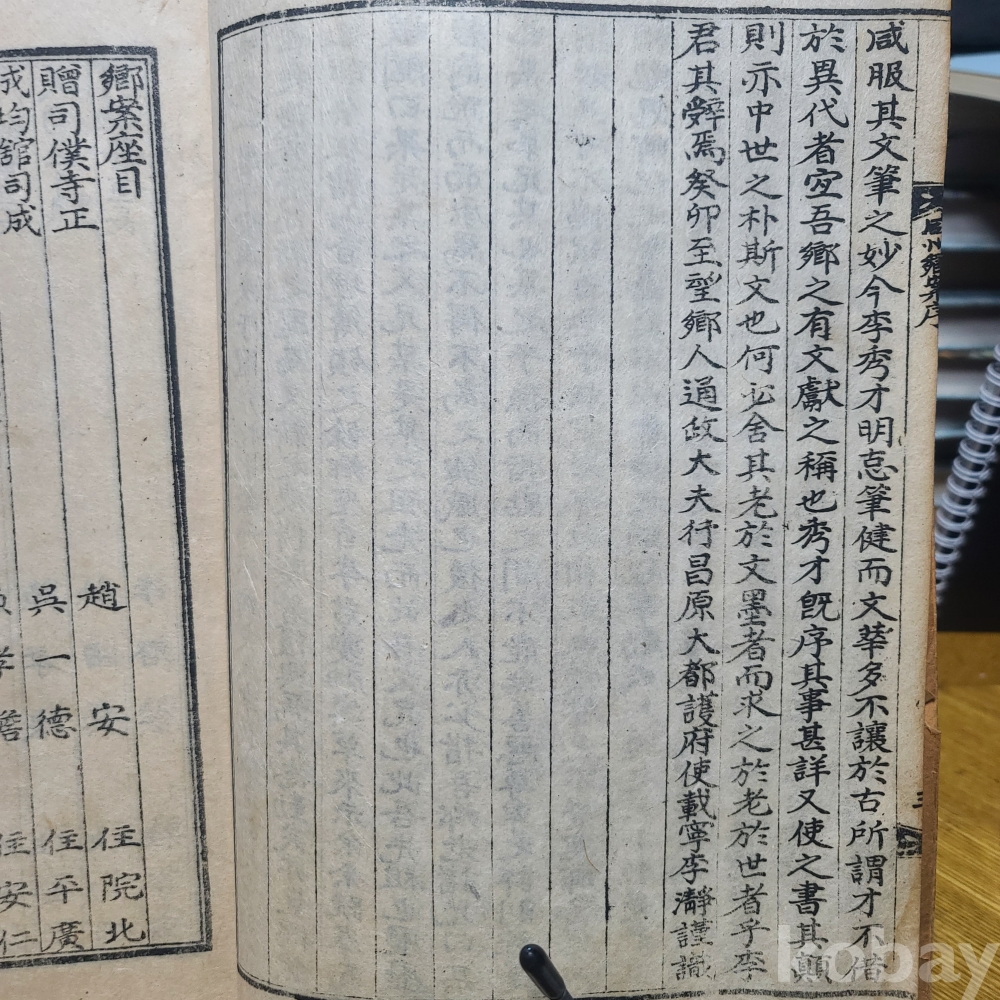 咸服其文筆之妙今李秀才明怘筆健而文華多不讓於古所謂才不借
於異代者宜吾鄉之有文獻之稱也秀才旣序其事甚詳又使之書其顚
則亦中世之朴斯文也何必舍其老於文墨者而求之於老於世者乎李
君其辭焉癸卯至望鄉人通政大夫行昌原大都護府使載寧李瀞謹識
鄉案序
三
鄉案座目
贈司僕寺正 趙安 住院北
成均舘司成 吳一德 住平廣
住安仁
kobay